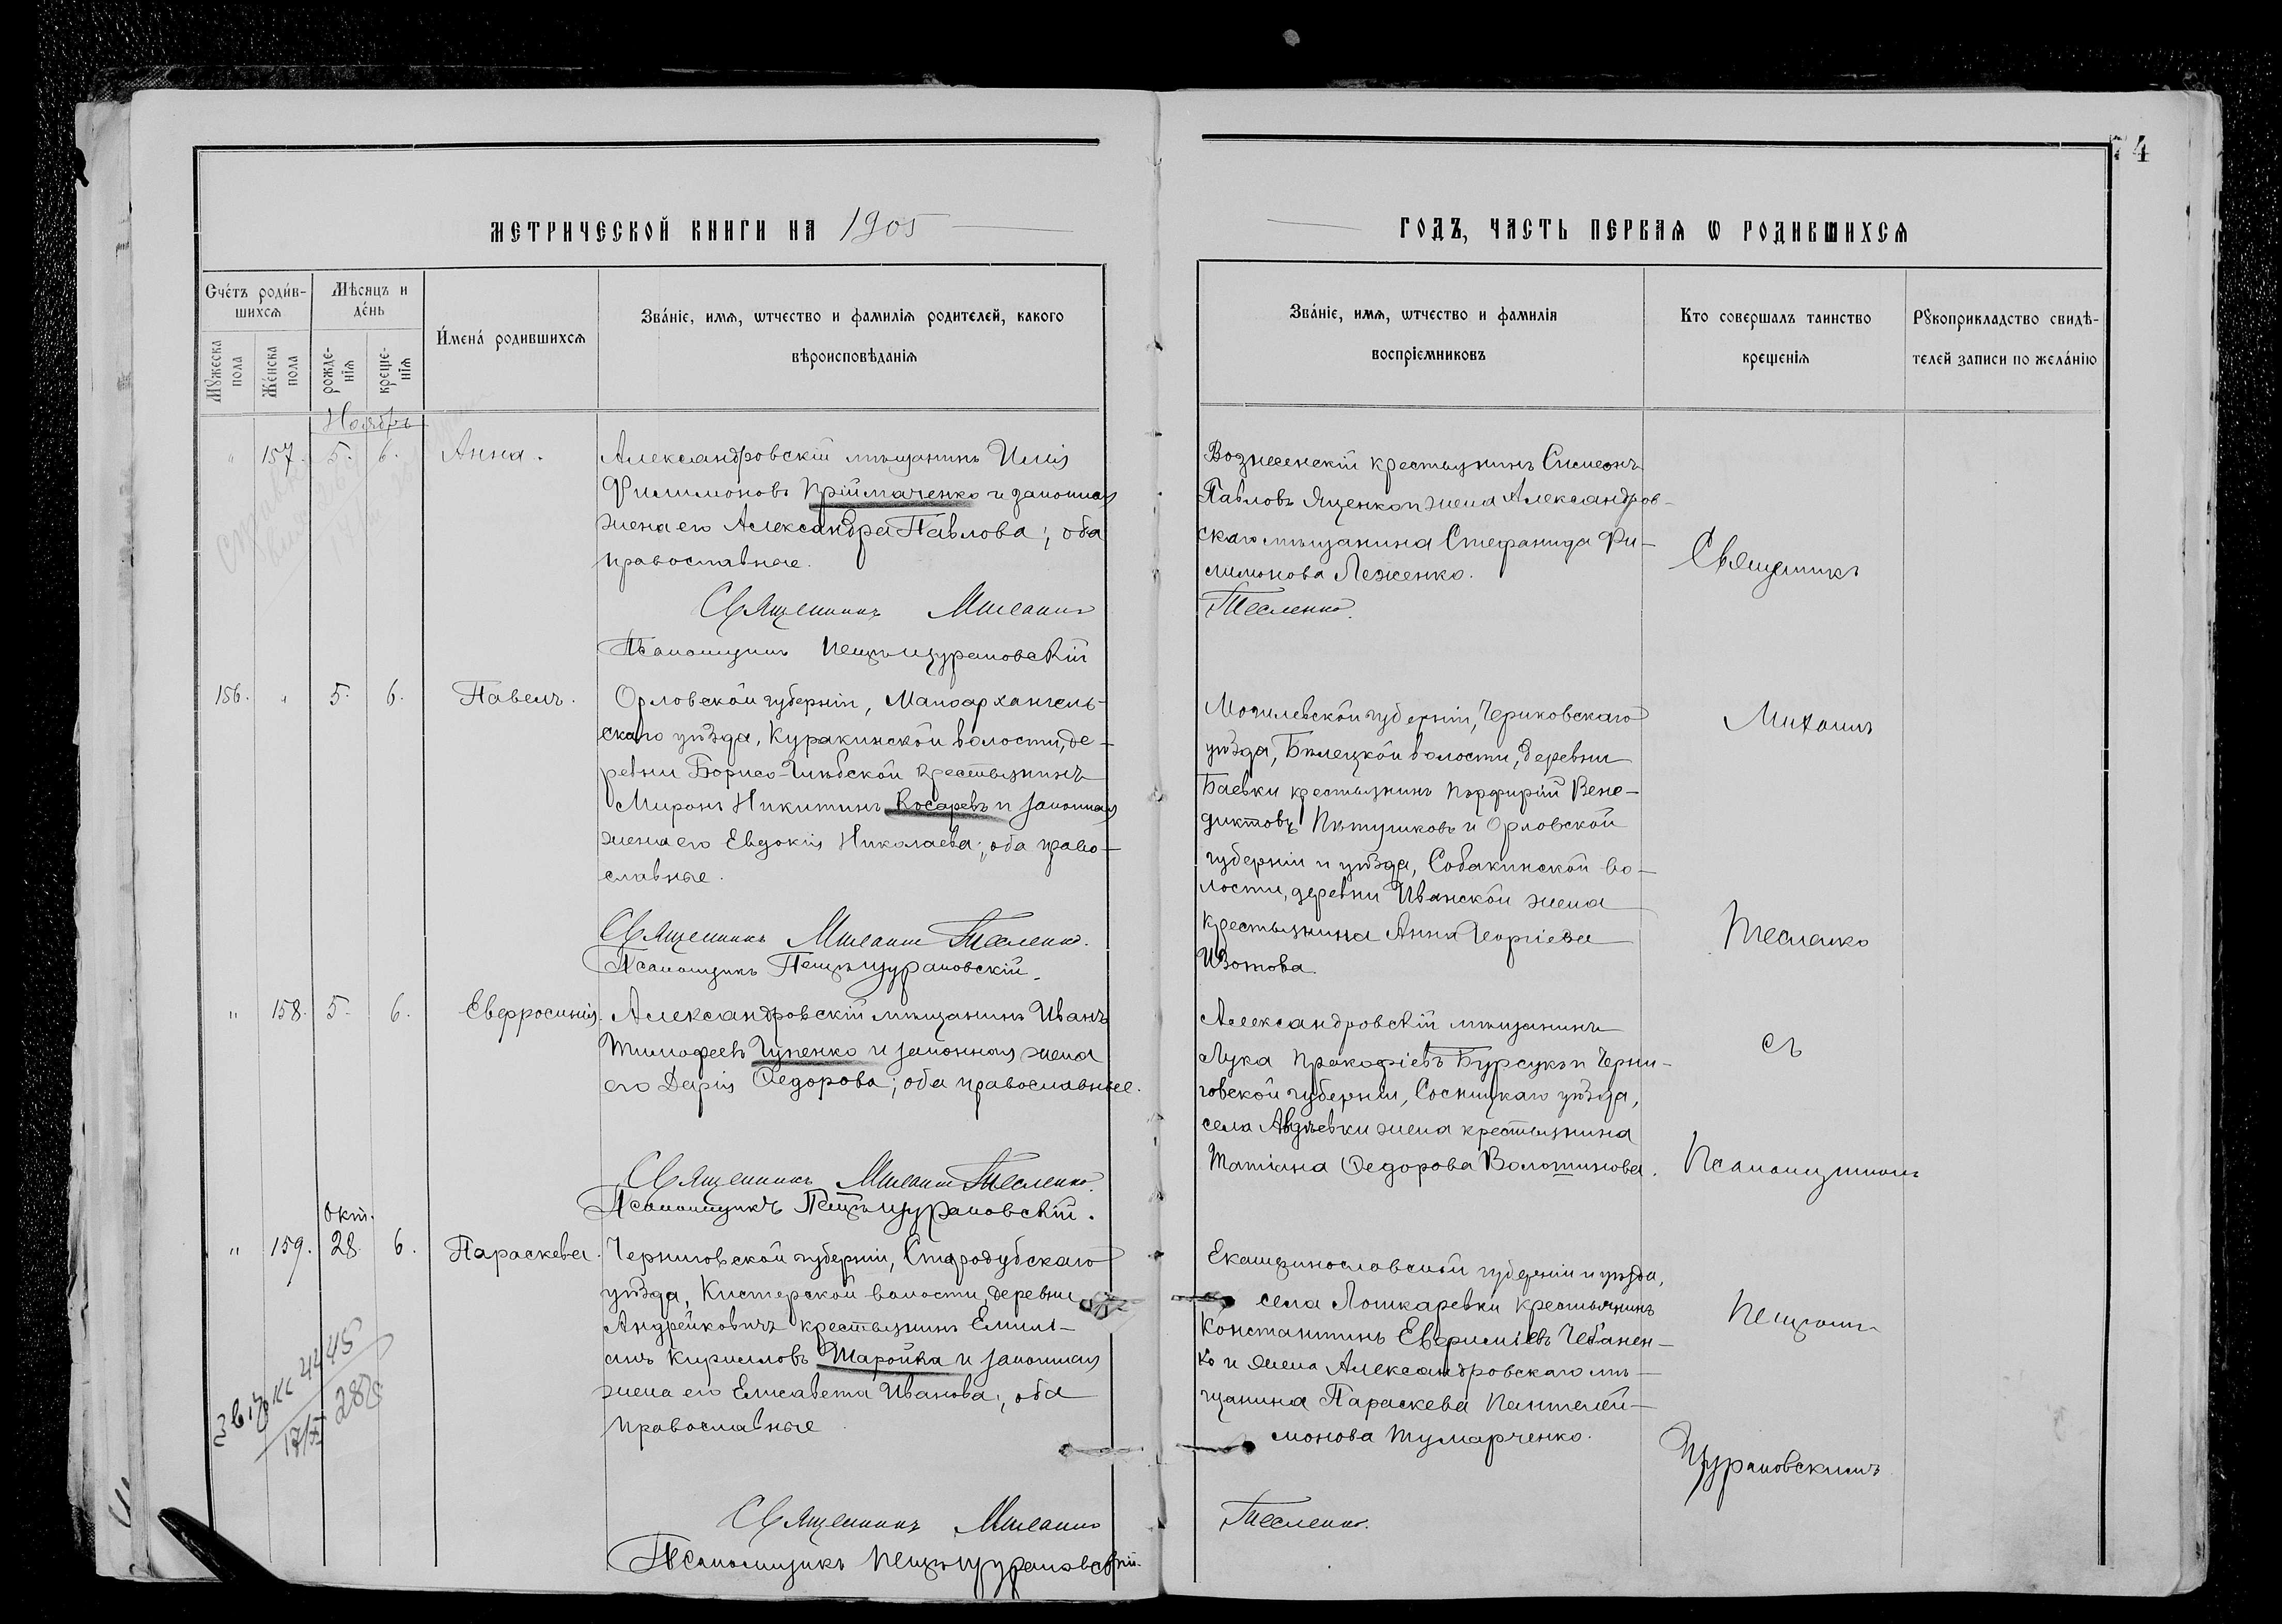 74
МЕТРИЧЕСКОЙ КНИГИ НА 1905
ГОДЪ, ЧАСТЬ ПЕРВАѦ Ѡ РОДИВШИХСѦ
Счéтъ роди́в-
шихсѧ
Мѣсяцъ и
дéнь
И́мена́ родившихсѧ
Звáнїе, имѧ, ѡтчество и фамилїѧ родителей, какого
вѣроисповѣданїѧ
Мꙋжеска
пола
Жéнска
пола
рожде-
нїѧ
креще-
нїѧ
Звáнїе, имѧ, ѡтчество и фамилїѧ
воспрїемниковъ
Кто совершалъ таинство
крещенїѧ
Рꙋкоприкладство свидѣ-
телей записи по желáнїю
Ноябрь
" 157. 5. 6. Анна.
Александровскій мѣщанинъ Илія
Филимоновъ Пріймаченко и законная
жена его Александра Павлова; оба
православные.
Священникъ Михаилъ
Псаломщикъ Пещанскій
Вознесенскій крестьянинъ Симеонъ
Павловъ Яценко и жена Александров-
скаго мѣщанина Стефанида Фи-
лимонова Леженко.
Тесленко.
Священникъ
156. " 5. 6. Павелъ.
Орловской губерніи, Малоархангель-
скаго уѣзда, Куракинской волости, де-
ревни Борисо-Глѣбской крестьянинъ
Миронъ Никитинъ Косаревъ и законная
жена его Евдокія Николаева; оба право-
славные.
Священникъ Михаилъ Тесленко.
Псаломщикъ
Могилевской губерніи, Чериковскаго
уѣзда, Бѣлецкой волости, деревни
Баевки крестьянинъ Порфирій Вене-
диктовъ Пѣтушковъ и Орловской
губерніи и уѣзда, Собакинской во-
лости, деревни Иванской жена
крестьянина Анна Георгіева
Изотова.
Михаилъ
Тесленко
" 158. 5. 6. Евфросинія.
Александровскій мѣщанинъ Иванъ
Тимофеевъ Гупенко и законная жена
его Дарія Ѳедорова; оба православные.
Священникъ Михаилъ Тесленко.
Псаломщикъ
Александровскій мѣщанинъ
Лука Прокофіевъ Бурсукъ и Черни-
говской губерніи, Сосницкаго уѣзда,
села Авдѣевки жена крестьянина
Татіана Ѳедорова Волотинова.
съ
Псаломщикомъ
Окт.
" 159. 28. 6. Параскева.
Черниговской губерніи, Стародубскаго
уѣзда, Кистерской волости, деревни
Андрейковичъ крестьянинъ Емилі-
анъ Кирилловъ Шаройка и законная
жена его Елисавета Иванова; оба
православные.
Священникъ Михаилъ
Псаломщикъ
Екатеринославской губерніи и уѣзда,
села Лошкаревки крестьянинъ
Константинъ Евфиміевъ Чебанен-
ко и жена Александровскаго мѣ-
щанина Параскева Пантелей-
монова Тумарченко.
Тесленко.